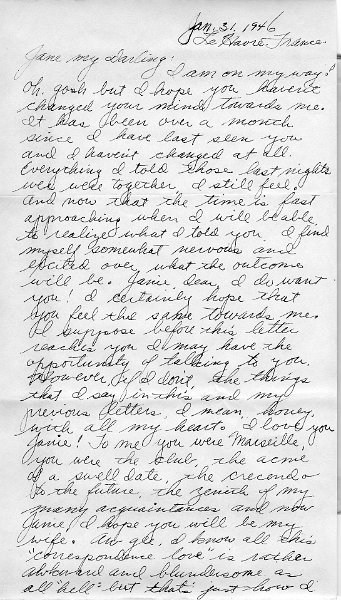 Jan. 31, 1946
Le Havre, France.
Jane my Darling:
I am on my way!
Oh, gosh but I hope you haven't
changed your mind towards me.
It has been over a month
since I have last seen you
and I haven't changed at all.
Everything I told those last nights
we were together, I still feel.
And now that the time is fast
approaching when I will be able
to realize what I told you I find
myself somewhat nervous and
excited over what the outcome
will be. Janie, dear, I do want
you! I certainly hope that
you feel the same towards me.
I suppose before this letter
reaches you I may have the
opportunity of talking to you.
However if I don't, the things
that I say in this and my
prevous letters, I mean, honey,
with all my heart. I love you
Janie! To me you were Marseille,
you were the club, the acme
of a swell date, the crecendo
to the future, the zenith of my
many acquaintances and now
Janie, I hope you will be my
wife. I know all this
"correspondence love" is rather
awkward and blundersome as
all "hell" but that's just how I